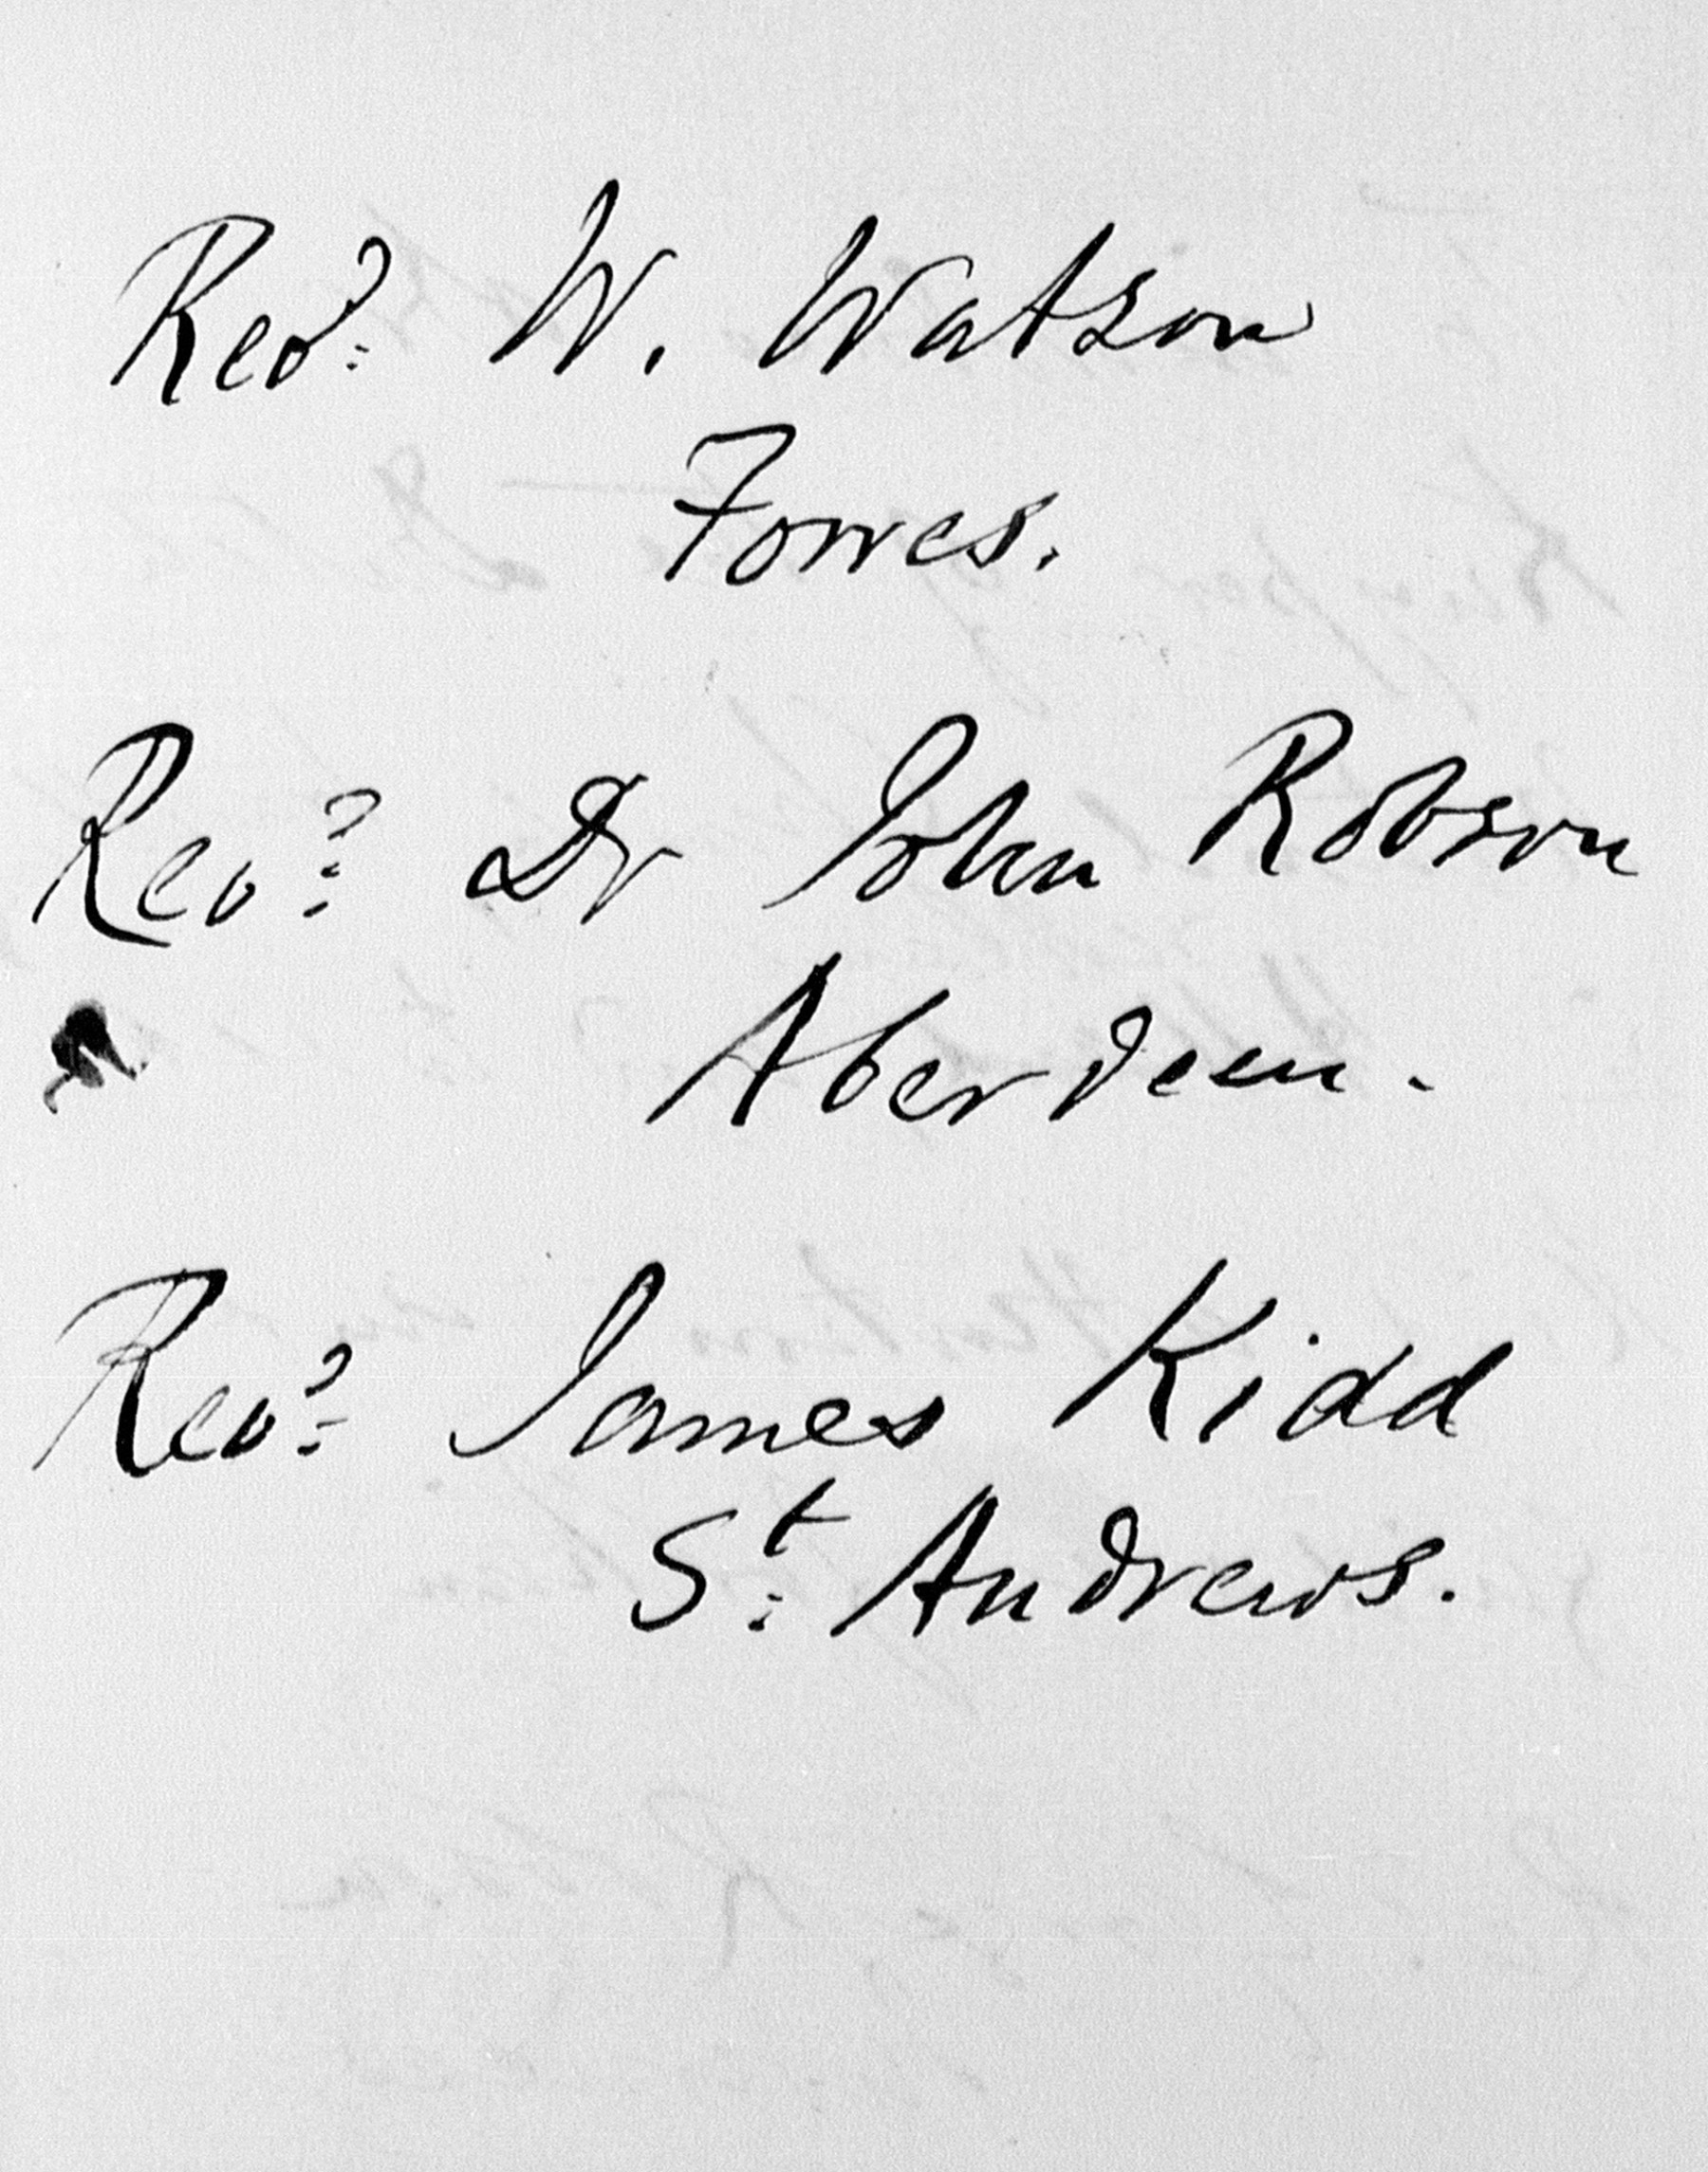 Revd. W. Watson
Forres.
Revd. Dr John Robson
Aberdeen.
Revd. James Kidd
St. Andrews.